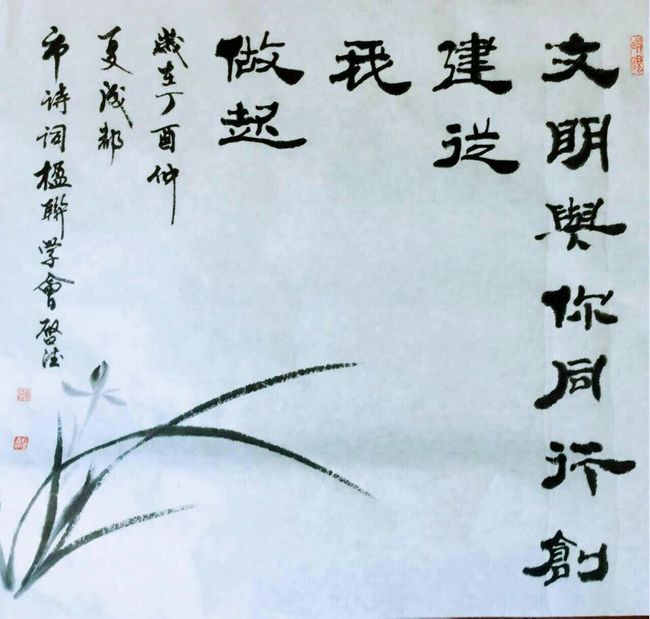 文明與你同行創
建從
我
做起
歲在丁酉仲
夏成都
市诗词楹聯学會啓陆